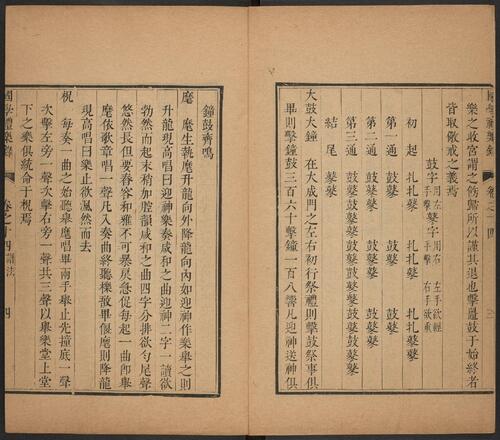 樂之收宮謂之飭歸所以謹其退也擊鼓于始終者
皆取儆戒之義焉
鼓字 用左手擊 鼕字 用右手擊 左手欲輕 右手欲重
初起 扎扎鼕 扎扎鼕 扎扎鼕鼕
第一通 鼓鼕 鼓鼕 鼓鼕鼓鼕鼕
第二通
第三通 鼓鼕
結尾 鼕鼕
大鼓大鐘 在大成門之左右初行祭禮則擊鼓祭事俱
畢則擊鐘鼓三百六十擊鐘一百八響凡迎神送神俱
鐘鼓齊鳴
麾 麾生執麾升龍向外降龍向內如迎神作樂舉之則
升龍現高唱曰迎神樂奏咸和之曲迎神二字一讀欲
勃然而起末稍加腔韻咸和之曲四字分排欲勻尾聲
悠然長但要舂容和雅不可暴戾急促每起一曲卽舉
麾依歌章唱一聲凡入奏曲終聽櫟敔畢偃麾則降龍
現高唱曰樂止欲渢然而去
柷 每奏一曲之始聽舉麾唱畢兩手舉止先撞底一聲
次擊左旁一聲次擊右旁一聲共三聲以舉樂堂上堂
下之樂俱統命于柷焉
國學禮樂錄 卷之十四 譜法 四